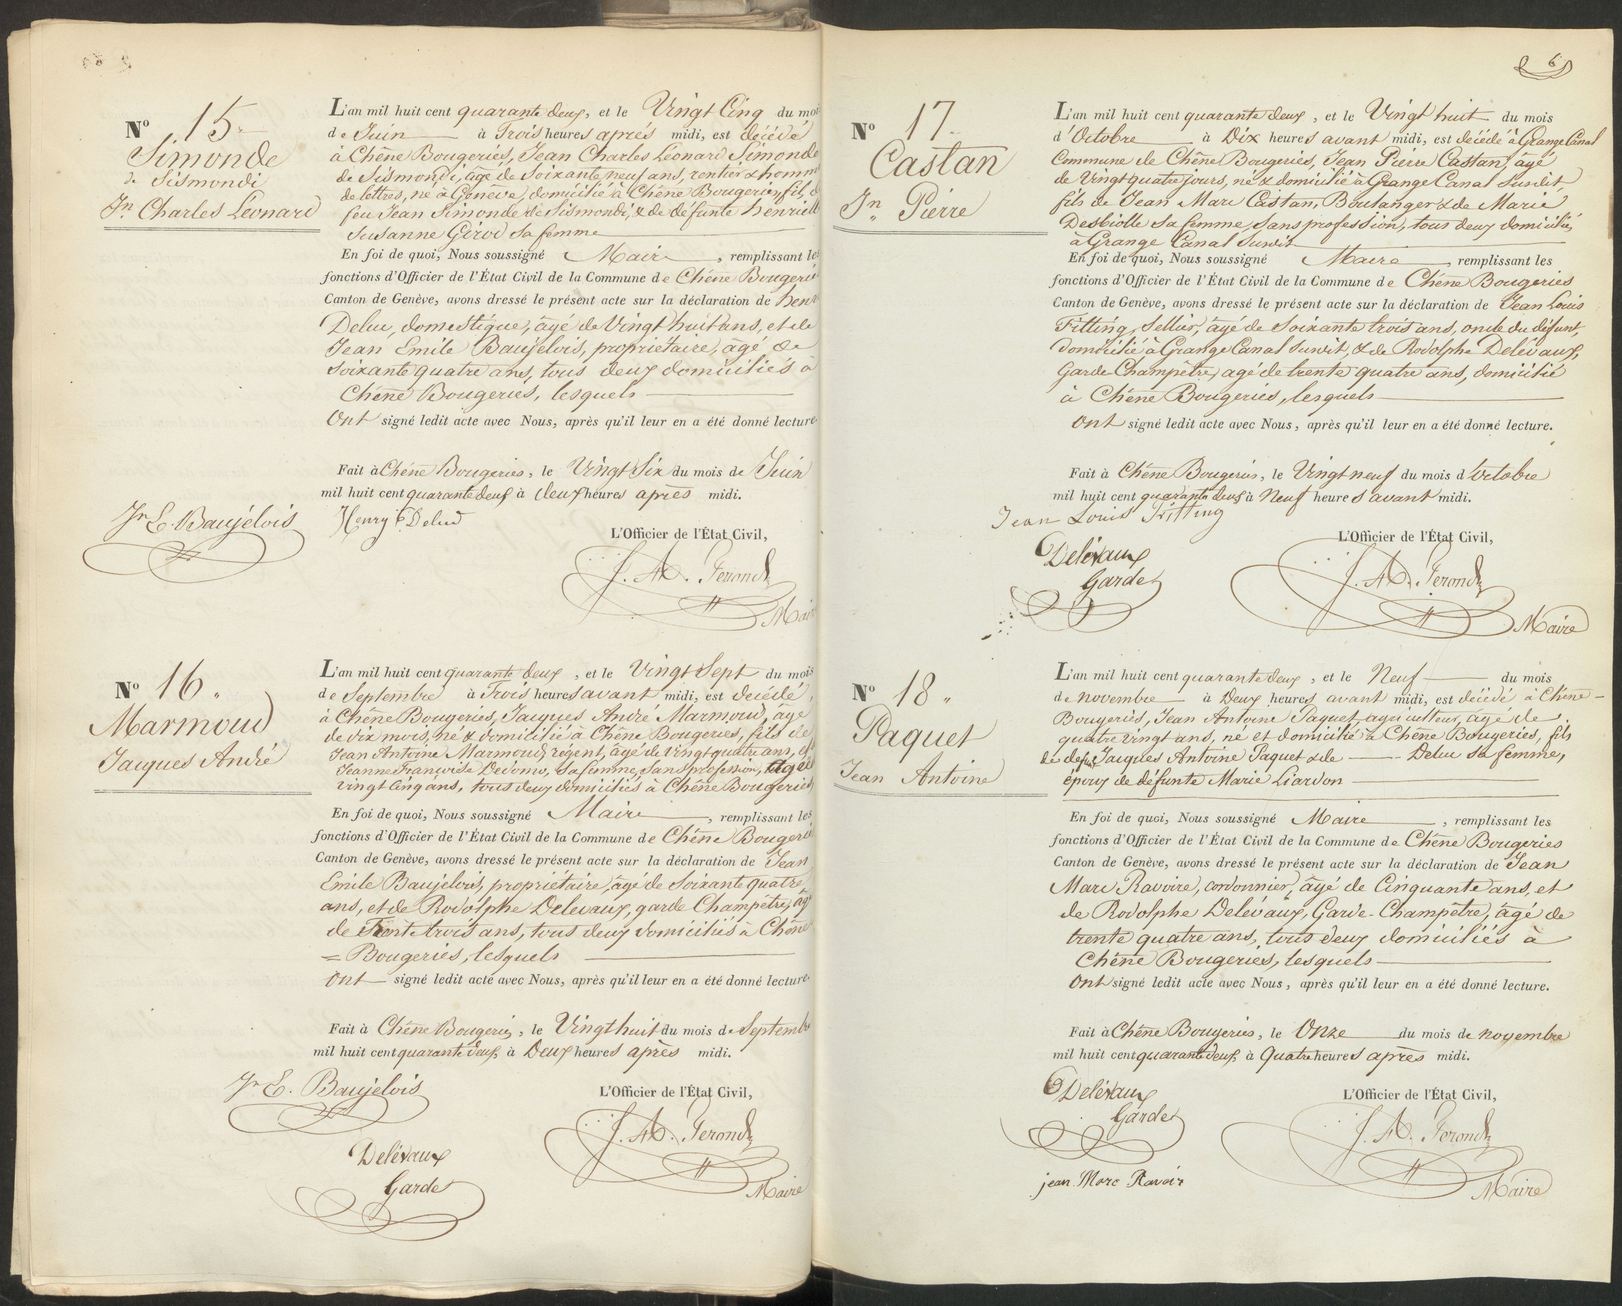 Nº 15.
Simonde
de Sismondi
Jn Charles Léonard
L'an mil huit cent quarante deux, et le Vingt Cinq du mois
de Juin à Trois heures après midi, est décédé
à Chêne Bougeries, Jean Charles Léonard Simonde
de Sismondi, âgé de Soixante neuf ans, rentier & homme
de lettres, né à Genève, domicilié à Chêne Bougeries, fils de
feu Jean Simonde de Sismondi, & de défunte henriette
Susanne Girod sa femme
En foi de quoi, Nous soussigné Maire, remplissant les
fonctions d'Officier de l'État Civil de la Commune de Chêne Bougeries
Canton de Genève, avons dressé le présent acte sur la déclaration de henri
Deluc, domestique, âgé de Vingt huit ans, et de
Jean Emile Baujelois, propriétaire, âgé de
Soixante quatre ans, tous deux domiciliés à
Chêne Bougeries, lesquels
Ont signé ledit acte avec Nous, après qu'il leur en a été donné lecture.
Fait à Chêne Bougeries, le Vingt Six du mois de Juin
mil huit cent quarante deux à deux heures après midi.
Jn E. Baujelois
Henry Deluc
L'Officier de l'État Civil,
J. Ad. Perond
Maire
Nº 16.
Marmoud
Jacques André
L'an mil huit cent quarante deux, et le Vingt Sept du mois
de Septembre à Trois heures avant midi, est décédé
à Chêne Bougeries, Jacques André Marmoud, âgé
de dix mois, né & domicilié à Chêne Bougeries, fils de
Jean Antoine Marmoud, régent, âgé de vingt quatre ans, et
Jeanne Françoise sa femme, Sans profession, âgée
Vingt Cinq ans, tous deux domiciliés à Chêne Bougeries
En foi de quoi, Nous soussigné Maire, remplissant les
fonctions d'Officier de l'État Civil de la Commune de Chêne Bougeries
Canton de Genève, avons dressé le présent acte sur la déclaration de Jean
Emile Baujelois, propriétaire, âgé de Soixante quatre
ans, et de Rodolphe Delevaux, garde Champêtre, âgé
de Trente trois ans, tous deux domiciliés à Chêne
= Bougeries, lesquels
Ont signé ledit acte avec Nous, après qu'il leur en a été donné lecture.
Fait à Chêne Bougeries, le Vingt huit du mois de Septembre
mil huit cent quarante deux, à Deux heures après midi.
Jn E. Baujelois
Delévaux
Garde
L'Officier de l'État Civil,
J. Ad. Perond
Maire
6
Nº 17.
Castan
Jn Pierre
L'an mil huit cent quarante deux, et le Vingt huit du mois
d'Octobre à Dix heures avant midi, est décédé à Grange Canal
Commune de Chêne Bougeries, Jean Pierre Castan, âgé
de Vingt quatre jours, né & domicilié à Grange Canal Susdit,
fils de Jean Marc Castan, Boulanger & de Marie
Desbiolle sa femme sans profession, tous deux domiciliés,
à Grange Canal Susdit
En foi de quoi, Nous soussigné Maire, remplissant les
fonctions d'Officier de l'État Civil de la Commune de Chêne Bougeries
Canton de Genève, avons dressé le présent acte sur la déclaration de Jean Louis
Fitting, Sellier, âgé de Soixante trois ans, oncle du défunt,
domicilié à Grange Canal Susdit, & de Rodolphe Delévaux,
Garde-Champêtre, agé de trente quatre ans, domicilié
à Chêne Bougeries, lesquels
Ont signé ledit acte avec Nous, après qu'il leur en a été donné lecture.
Fait à Chêne Bougeries, le Vingt neuf du mois d'Octobre
mil huit cent quarante deux à Neuf heures avant midi.
Jean Louis Fitting
Delévaux
Garde
L'Officier de l'État Civil,
J. Ad. Perond
Maire
Nº 18.
Paquet
Jean Antoine
L'an mil huit cent quarante deux, et le Neuf du mois
de novembre à Deux heures avant midi, est décédé à Chêne-
Bougeries, Jean Antoine Paquet, agriculteur, âgé de
quatre vingt ans, né et domicilié à Chêne Bougeries, fils
de déft Jacques Antoine Paquet & de Deluc sa femme,
époux de défunte Marie Liardon
En foi de quoi, Nous soussigné Maire, remplissant les
fonctions d'Officier de l'État Civil de la Commune de Chêne Bougeries
Canton de Genève, avons dressé le présent acte sur la déclaration de Jean
Marc Ravoire, cordonnier, âgé de Cinquante ans, et
de Rodolphe Delévaux, Garde-Champêtre, âgé de
trente quatre ans, tous deux domiciliés à
Chêne Bougeries, lesquels
Ont signé ledit acte avec Nous, après qu'il leur en a été donné lecture.
Fait à Chêne Bougeries, le Onze du mois de novembre
mil huit cent quarante deux, à Quatre heures après midi.
Delévaux
Garde
jean Marc Ravoir
L'Officier de l'État Civil,
J. Ad. Perond
Maire